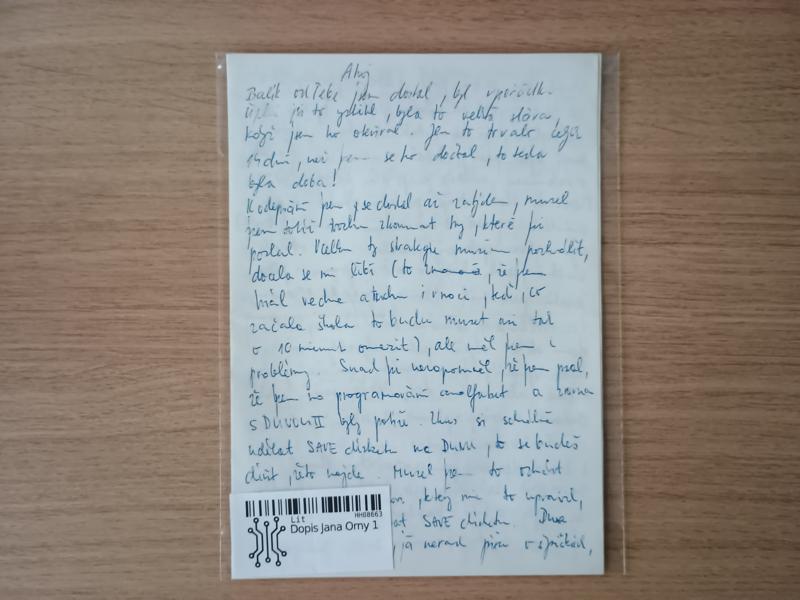 Ahoj
Balík od Tebe jsem dostal, byl v pořádku
jsi to, byla to velká sláva,
když jsem ho otvíral. Jen to trvalo
14 dní, než jsem se ho dočkal, to teda
byla doba!
K dopsání jsem se dostal až za týden, musel
jsem totiž trochu zkoumat hry, které jsi
poslal. ty strategie musím pochválit,
docela se mi líbí (to znamená, že jsem
hrál ve dne a trochu i v noci, teď, co
začala škola to budu muset asi tak
o 10 minut omezit), ale měl jsem i
problémy. Snad jsi nezapomněl, že jsem psal,
že jsem na programování analfabet a zrovna
s DUNOU II byly potíže. Zkus si schválně
udělat SAVE disketu na DUNU, to se budeš
divit, že to nejde. Musel jsem to
, který mi to upravil,
at SAVE disketu. Dva
, já nerad píšu o
Lit
HH08663
Dopis Jana Orny 1